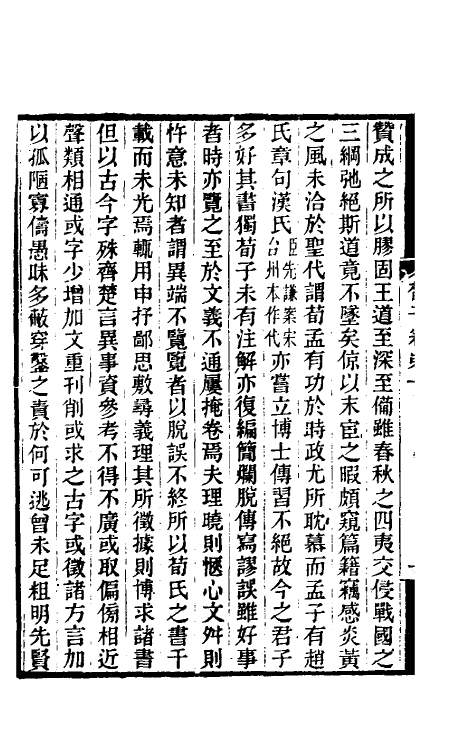 贊成之所以膠固王道至深至備雖春秋之四夷交侵戰國之
三綱弛絕斯道竟不墜矣倞以末宦之暇頗窺篇籍竊感炎黃
之風未洽於聖代謂荀孟有功於時政尤所耽慕而孟子有趙
氏章句漢氏臣先謙案宋台州本作代亦嘗立博士傳習不絕故今之君子
多好其書獨荀子未有注解亦復編簡爛脫傳寫謬誤雖好事
者時亦覽之至於文義不通屢掩卷焉夫理曉則愜心文舛則
忤意未知者謂異端不覽覽者以脫誤不終所以荀氏之書千
載而未光焉輒用申抒鄙思敷尋義理其所徵據則博求諸書
但以古今字殊齊楚言異事資參考不得不廣或取偏傍相近
聲類相通或字少增加文重刊削或求之古字或徵諸方言加
以孤陋寡儔愚昧多蔽穿鑿之責於何可逃曾未足粗明先賢